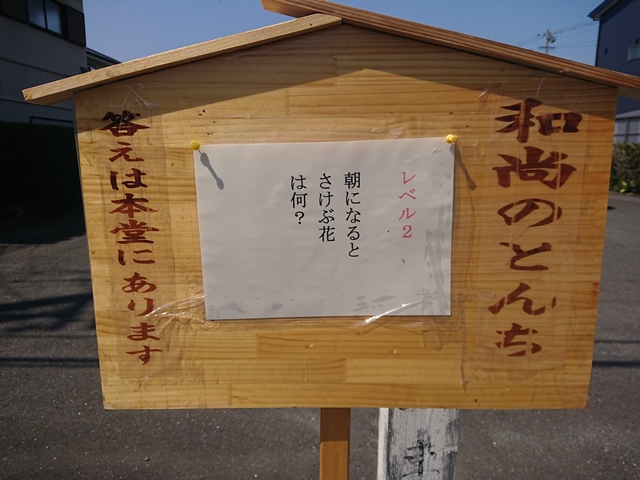 和尚のとんち
レベル2
朝になると
さけぶ花
は何？
答えは本堂にあります